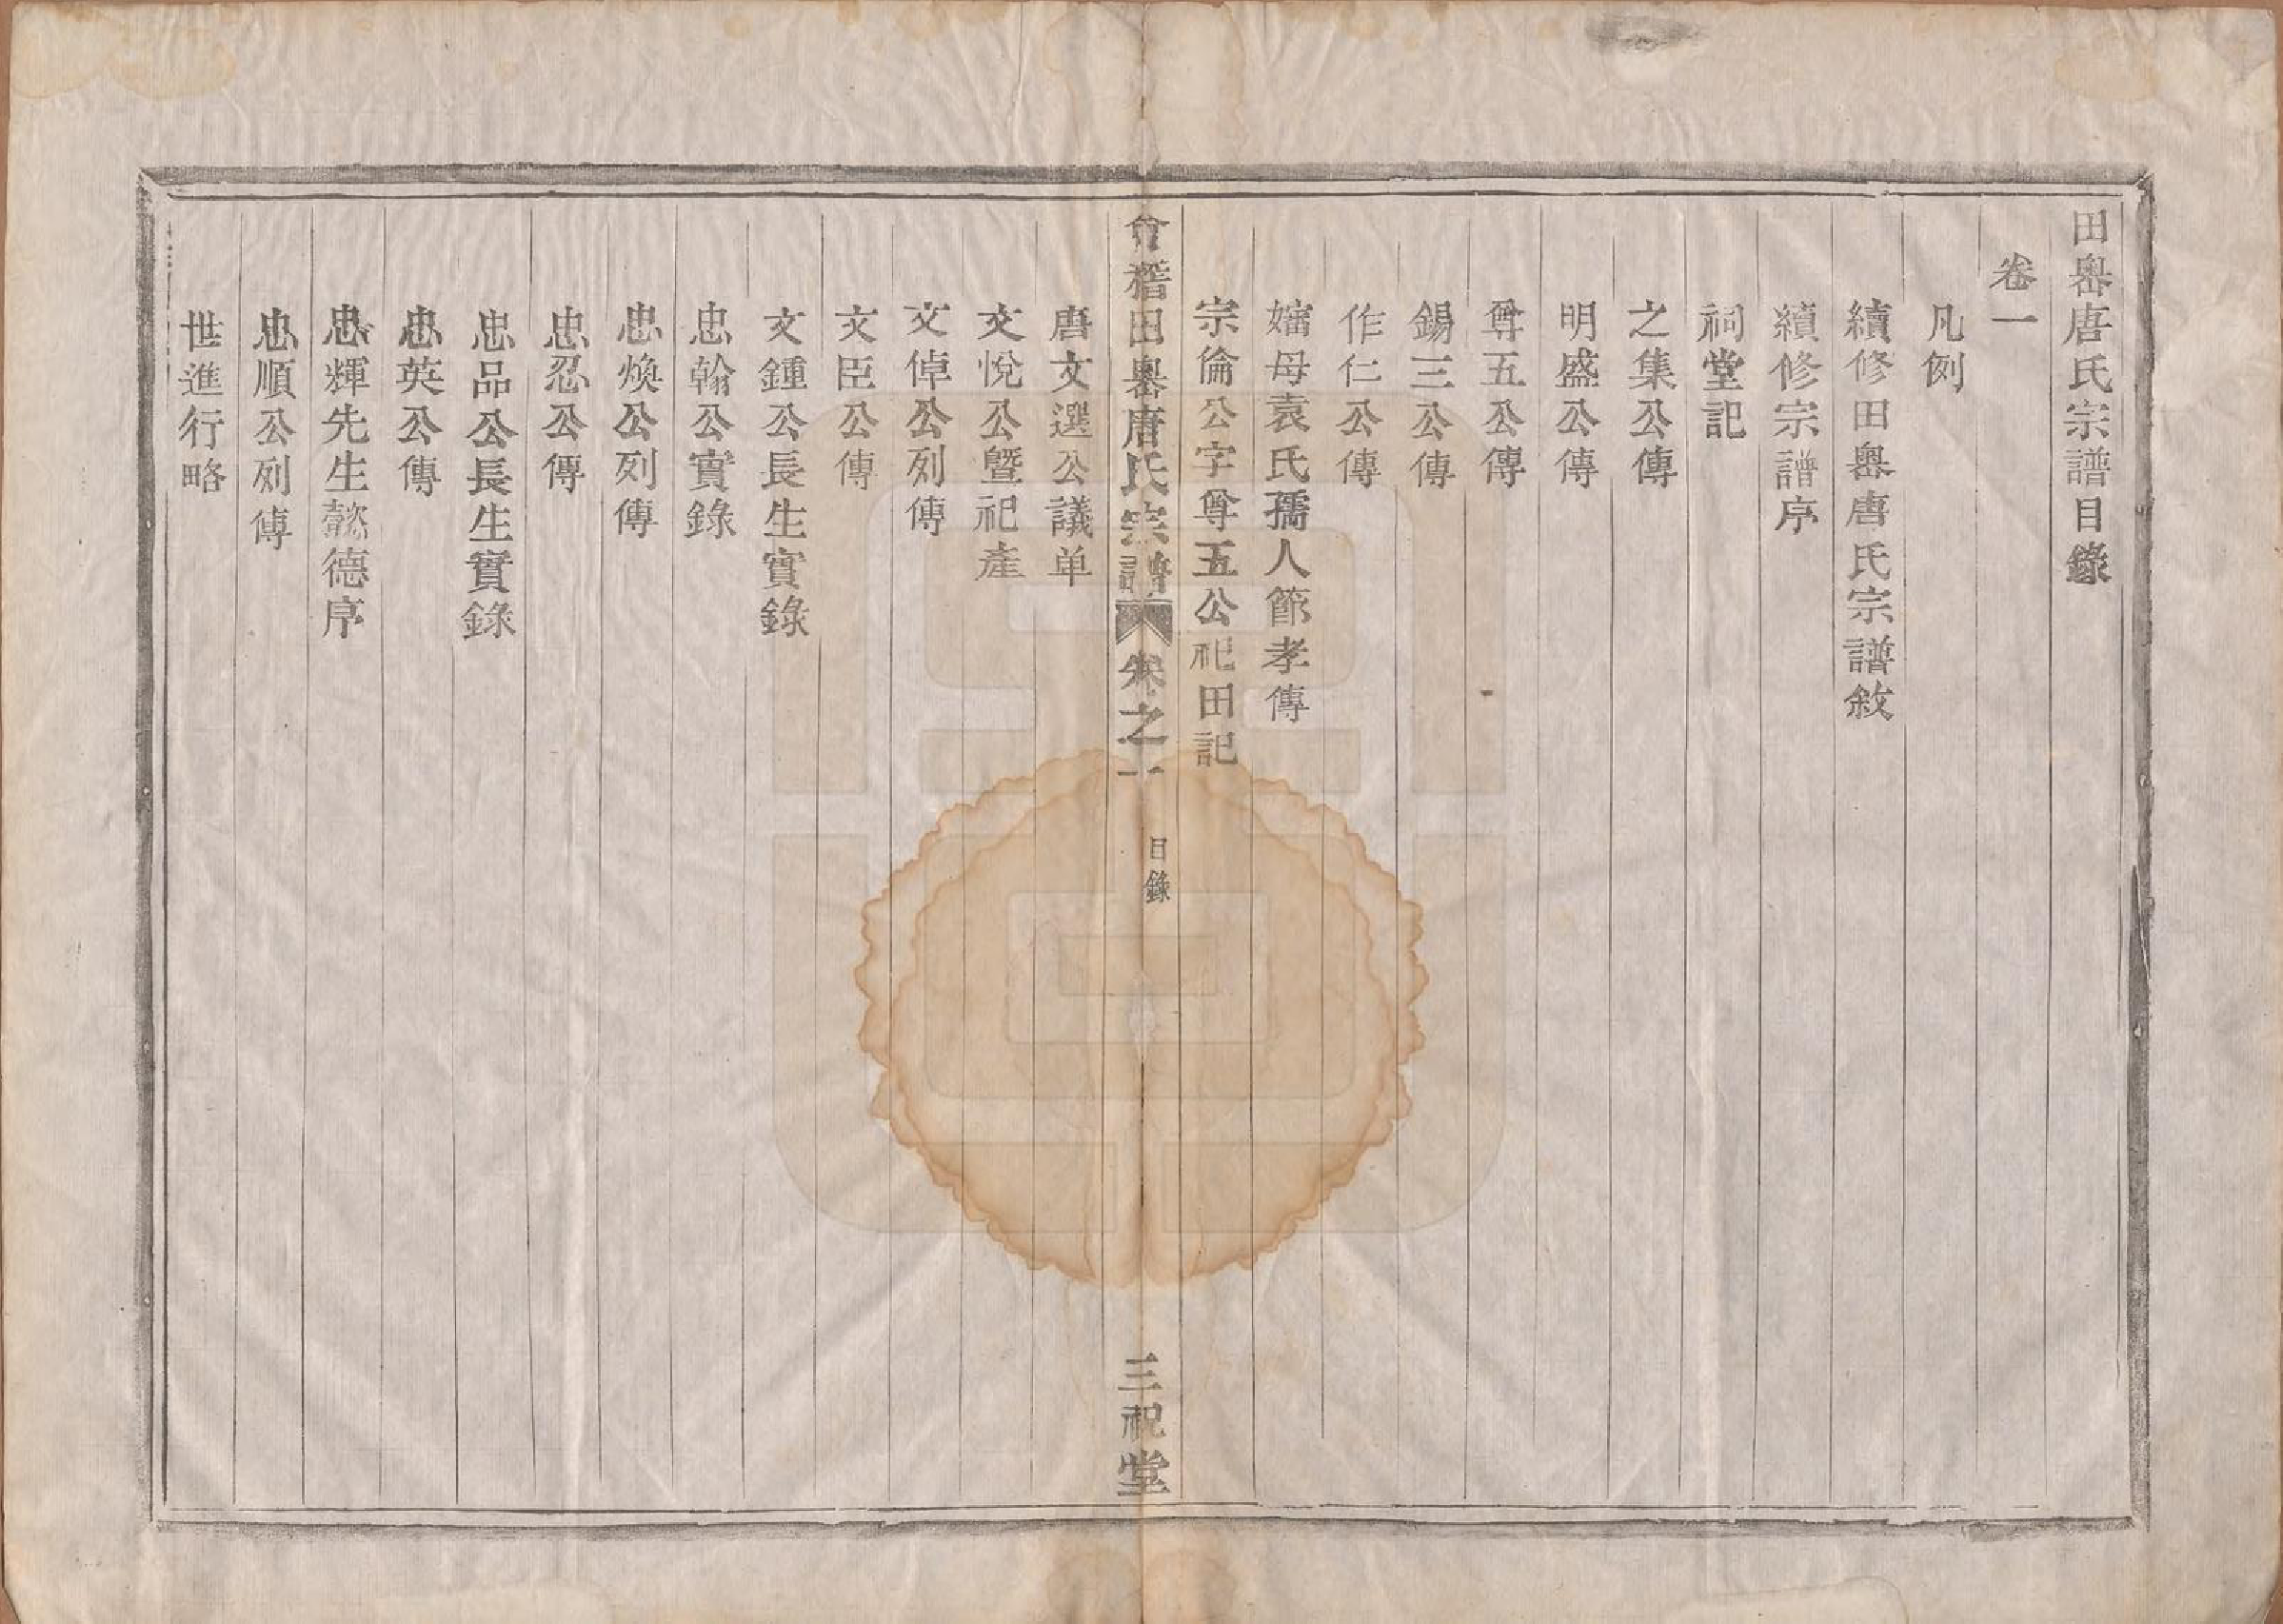 田嶴唐氏宗譜目錄
卷一
凡例
續修田嶴唐氏宗譜敘
續修宗譜序
祠堂記
之集公傳
明盛公傳
尊五公傳
錫三公傳
作仁公傳
嬸母袁氏孺人節孝傳
宗倫公字尊五公祀田記
會稽田嶴唐氏宗譜
卷之一
目錄
三祝堂
唐文選公議单
文悅公暨祀產
文倬公列傳
文臣公傳
文鍾公長生實錄
忠翰公實錄
忠煥公列傳
忠忍公傳
忠品公長生實錄
忠英公傳
忠輝先生懿德序
忠順公列傳
世進行略